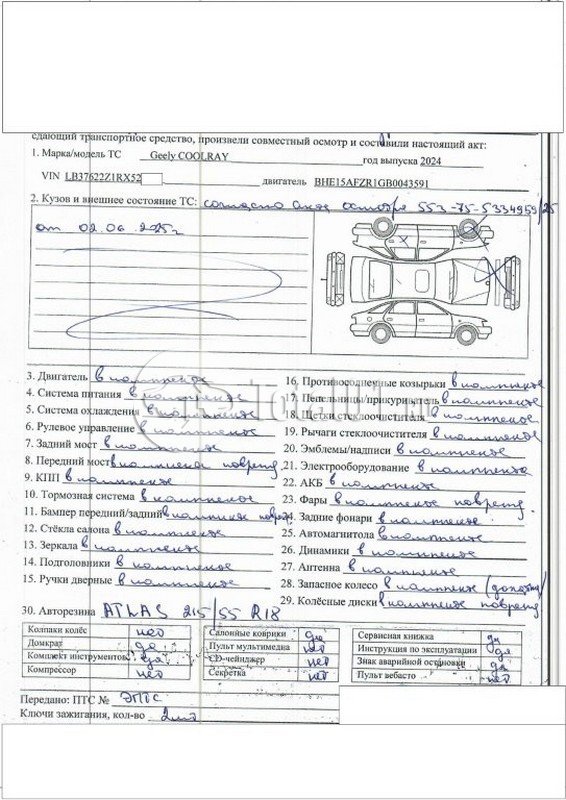 сдающий транспортное средство, произвели совместный осмотр и составили настоящий акт:
1. Марка/модель ТС Geely COOLRAY год выпуска 2024
VIN LB37622Z1RX52 двигатель BHE15AFZR1GB0043591
2. Кузов и внешнее состояние ТС: согласно акта осмотра 553-75-5334959/25
от 02.06.2025г
3. Двигатель в комплекте
4. Система питания в комплекте
5. Система охлаждения в комплекте
6. Рулевое управление в комплекте
7. Задний мост в комплекте
8. Передний мост в комплекте поврежд
9. КПП в комплекте
10. Тормозная система в комплекте
11. Бампер передний/задний в комплекте поврежд
12. Стёкла салона в комплекте
13. Зеркала в комплекте
14. Подголовники в комплекте
15. Ручки дверные в комплекте
16. Противосолнечные козырьки в комплекте
17. Пепельницы/прикуриватель в комплекте
18. Щетки стеклоочистителя в комплекте
19. Рычаги стеклоочистителя в комплекте
20. Эмблемы/надписи в комплекте
21. Электрооборудование в комплекте
22. АКБ в комплекте
23. Фары в комплекте поврежд
24. Задние фонари в комплекте
25. Автомагнитола в комплекте
26. Динамики в комплекте
27. Антенна в комплекте
28. Запасное колесо в комплекте
29. Колёсные диски в комплекте поврежд
30. Авторезина ATLAS 215/55 R18
Колпаки колёс нет
Домкрат да
Комплект инструментов да
Компрессор нет
Салонные коврики да
Пульт мультимедиа нет
CD-чейнджер нет
Секретка нет
Сервисная книжка да
Инструкция по эксплуатации да
Знак аварийной остановки да
Пульт вебасто нет
Передано: ПТС № ЭПТС
Ключи зажигания, кол-во 2шт